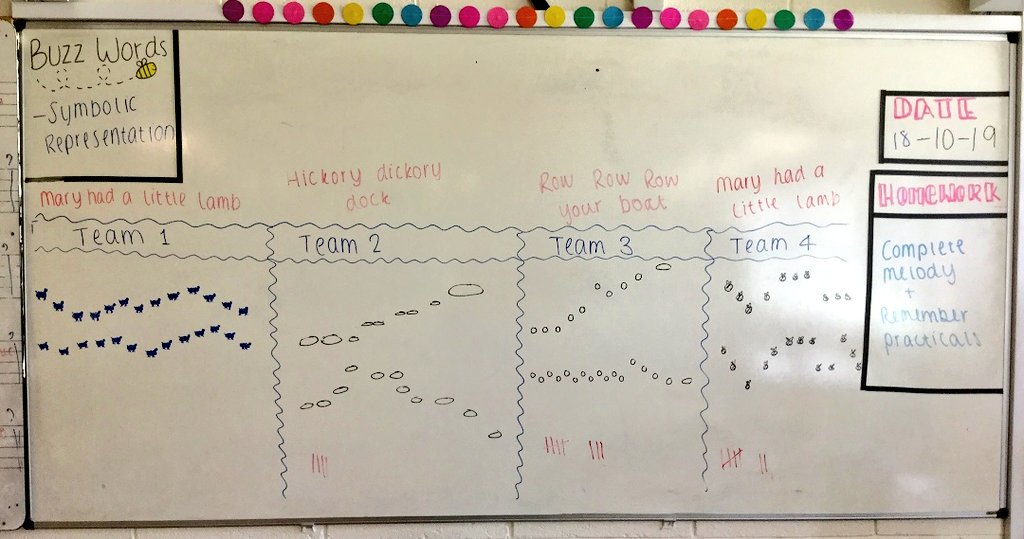 Buzz Words
-Symbolic
Representation
DATE
18-10-19
Mary had a little lamb
Hickory dickory
dock
Row Row Row
your boat
mary had a
little lamb
Team 1
Team 2
Team 3
Team 4
HOMEWORK
Complete
melody
+
Remember
practicals